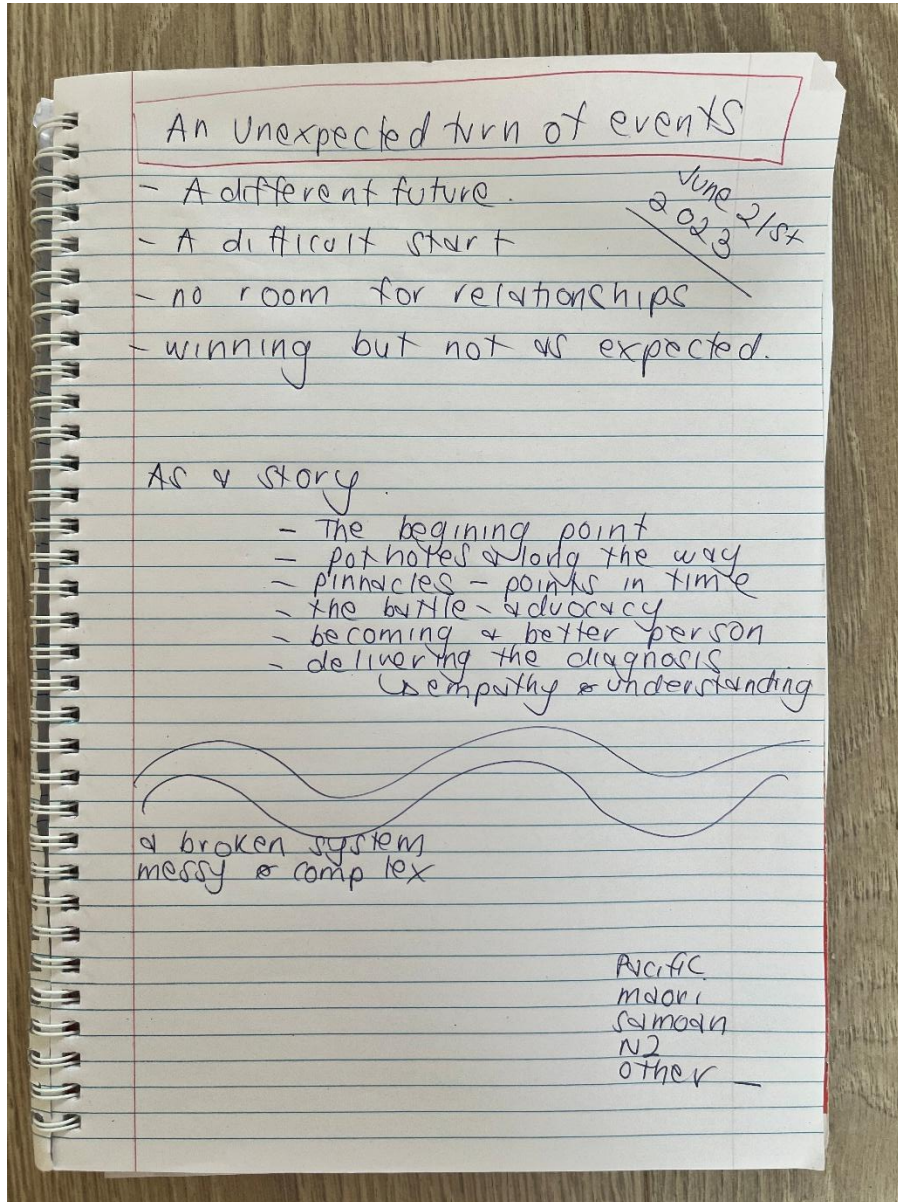 An Unexpected turn of events
June 21st
2023
- A different future.
- A difficult start
- no room for relationships
- winning but not as expected.
As a story.
- The begining point
- potholes along the way
- pinnacles - points in time
- the battle - advocacy
- becoming a better person
- delivering the diagnosis
↳ empathy & understanding
a broken system
messy & complex
Pacific
maori
Samoan
NZ
other _